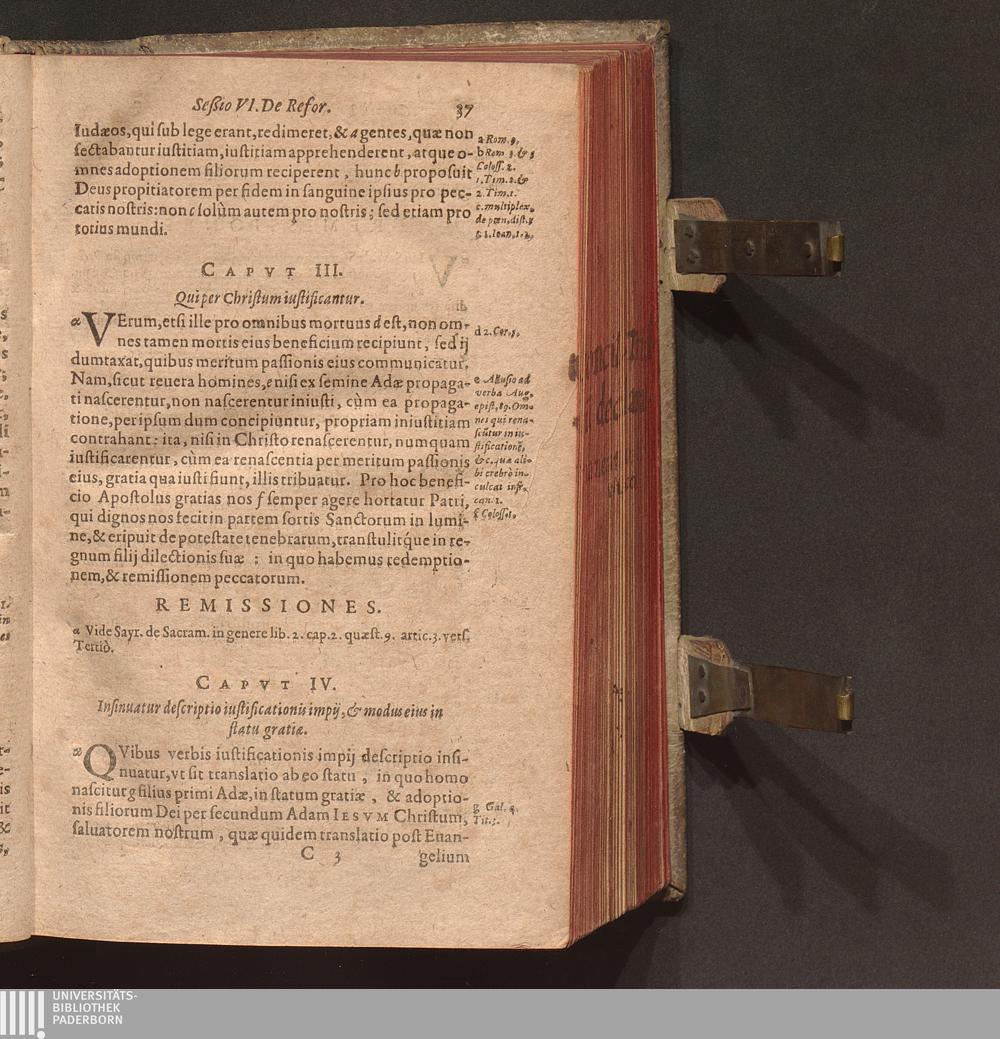 Seſsio VI. De Refor. 37
Iudæos, qui ſub lege erant, redimeret, & a gentes, quæ non
ſectabantur iuſtitiam, iuſtitiam apprehenderent, atque o-
mnes adoptionem filiorum reciperent, hunc b propoſuit
Deus propitiatorem per fidem in ſanguine ipſius pro pec-
catis noſtris: non c ſolùm autem pro noſtris; ſed etiam pro
totius mundi.
a Rom. 9.
b Rom. 3. & 5
Coloſſ. 2.
1. Tim. 2. &
2. Tim. 1.
c. multiplex.
de pœn. diſt.
1. Ioan. 1. 2.
CAPVT III.
Qui per Chriſtum iuſtificantur.
a VErum, etſi ille pro omnibus mortuus d eſt, non om-
nes tamen mortis eius beneficium recipiunt, ſed ij
dumtaxat, quibus meritum paſſionis eius communicatur.
Nam, ſicut reuera homines, e niſi ex ſemine Adæ propaga-
ti naſcerentur, non naſcerentur iniuſti, cùm ea propaga-
tione, per ipſum dum concipiuntur, propriam iniuſtitiam
contrahant: ita, niſi in Chriſto renaſcerentur, numquam
iuſtificarentur, cùm ea renaſcentia per meritum paſſionis
eius, gratia qua iuſti fiunt, illis tribuatur. Pro hoc benefi-
cio Apoſtolus gratias nos f ſemper agere hortatur Patri,
qui dignos nos fecit in partem ſortis Sanctorum in lumi-
ne, & eripuit de poteſtate tenebrarum, tranſtulitq́ue in re-
gnum filij dilectionis ſuæ : in quo habemus redemptio-
nem, & remiſſionem peccatorum.
d 2. Cor. 5.
e Alluſio ad
verba Aug.
epiſt. 89. Om-
nes qui rena-
ſcūtur in iu-
ſtificationē,
&c. quæ ali-
bi crebrò in-
culcat infr.
can. 2.
f Coloſſ. 1.
REMISSIONES.
a Vide Sayr. de Sacram. in genere lib. 2. cap. 2. quæſt. 9. artic. 3. verſ.
Tertiò.
CAPVT IV.
Inſinuatur deſcriptio iuſtificationis impij, & modus eius in
ſtatu gratiæ.
a QVibus verbis iuſtificationis impij deſcriptio inſi-
nuatur, vt ſit translatio ab eo ſtatu, in quo homo
naſcitur g filius primi Adæ, in ſtatum gratiæ, & adoptio-
nis filiorum Dei per ſecundum Adam IESVM Chriſtum,
ſaluatorem noſtrum, quæ quidem translatio poſt Euan-
g Gal. 4.
Tit. 3.
C 3 gelium
UNIVERSITÄTS-
BIBLIOTHEK
PADERBORN